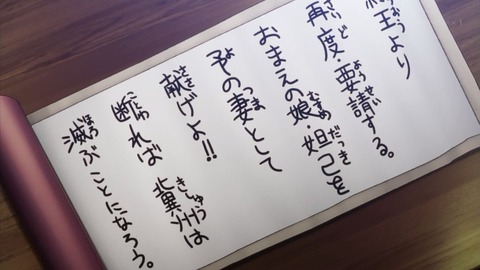 王より
再度・要請する。
おまえの娘・妲己を
予の妻として
献げよ!!
断れば 冀州は
滅ぶことになろう。